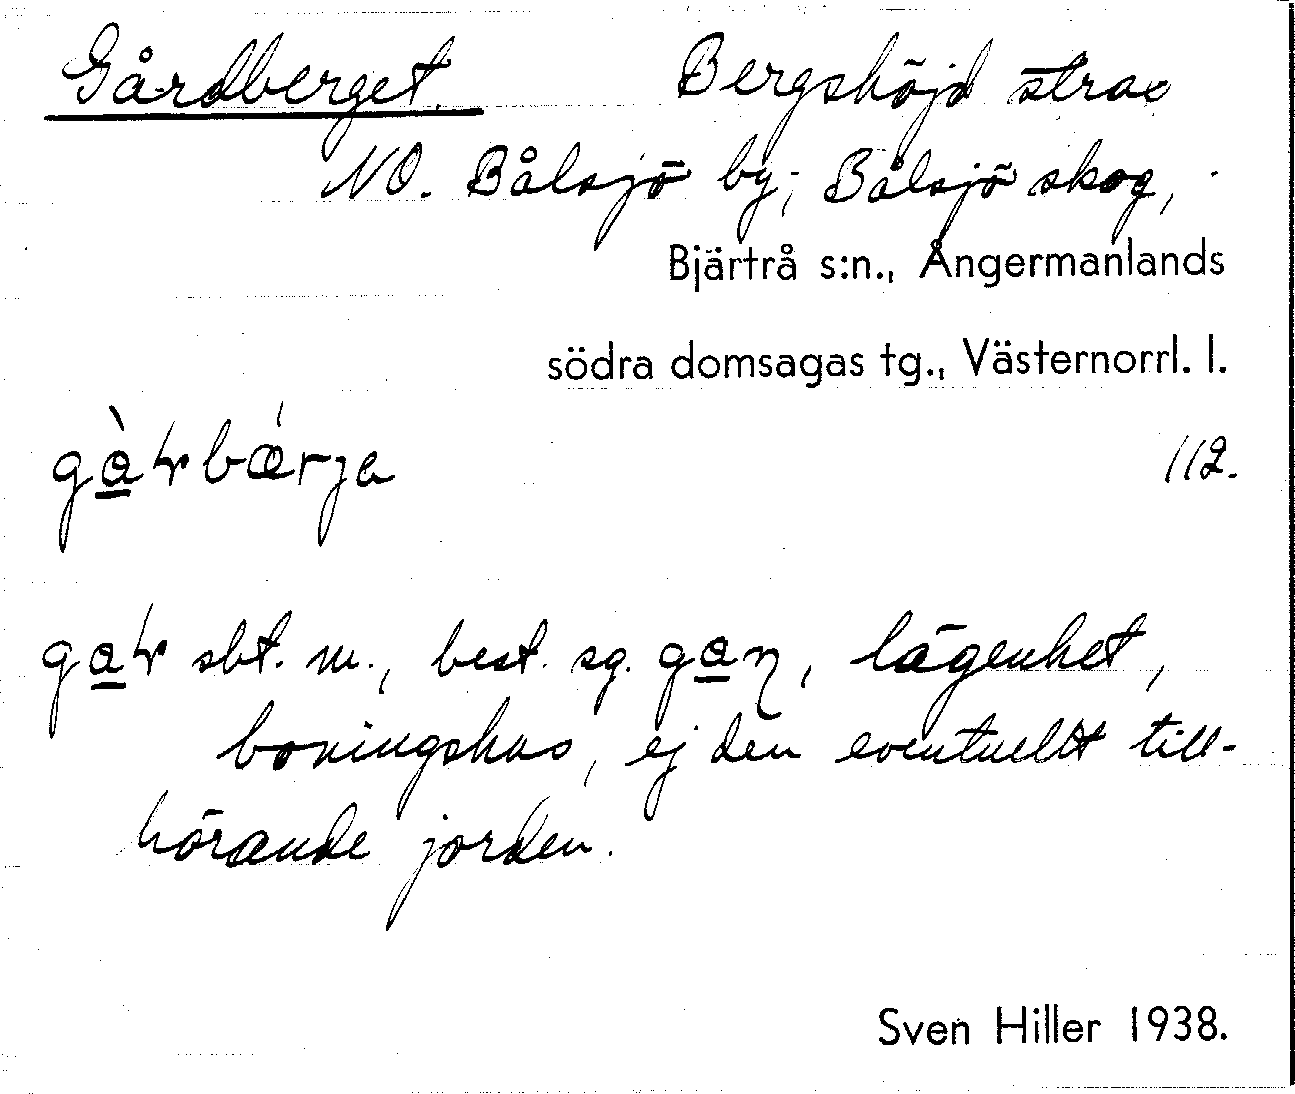 Gårdberget. Bergshöjd strax
NO. Bålsjö by; Bålsjö skog,
Bjärtrå s:n., Ångermanlands
södra domsagas tg., Västernorrl. l.
112.
sbt. m., best. sg. lägenhet,
boningshus, ej den eventuellt till-
hörande jorden.
Sven Hiller 1938.